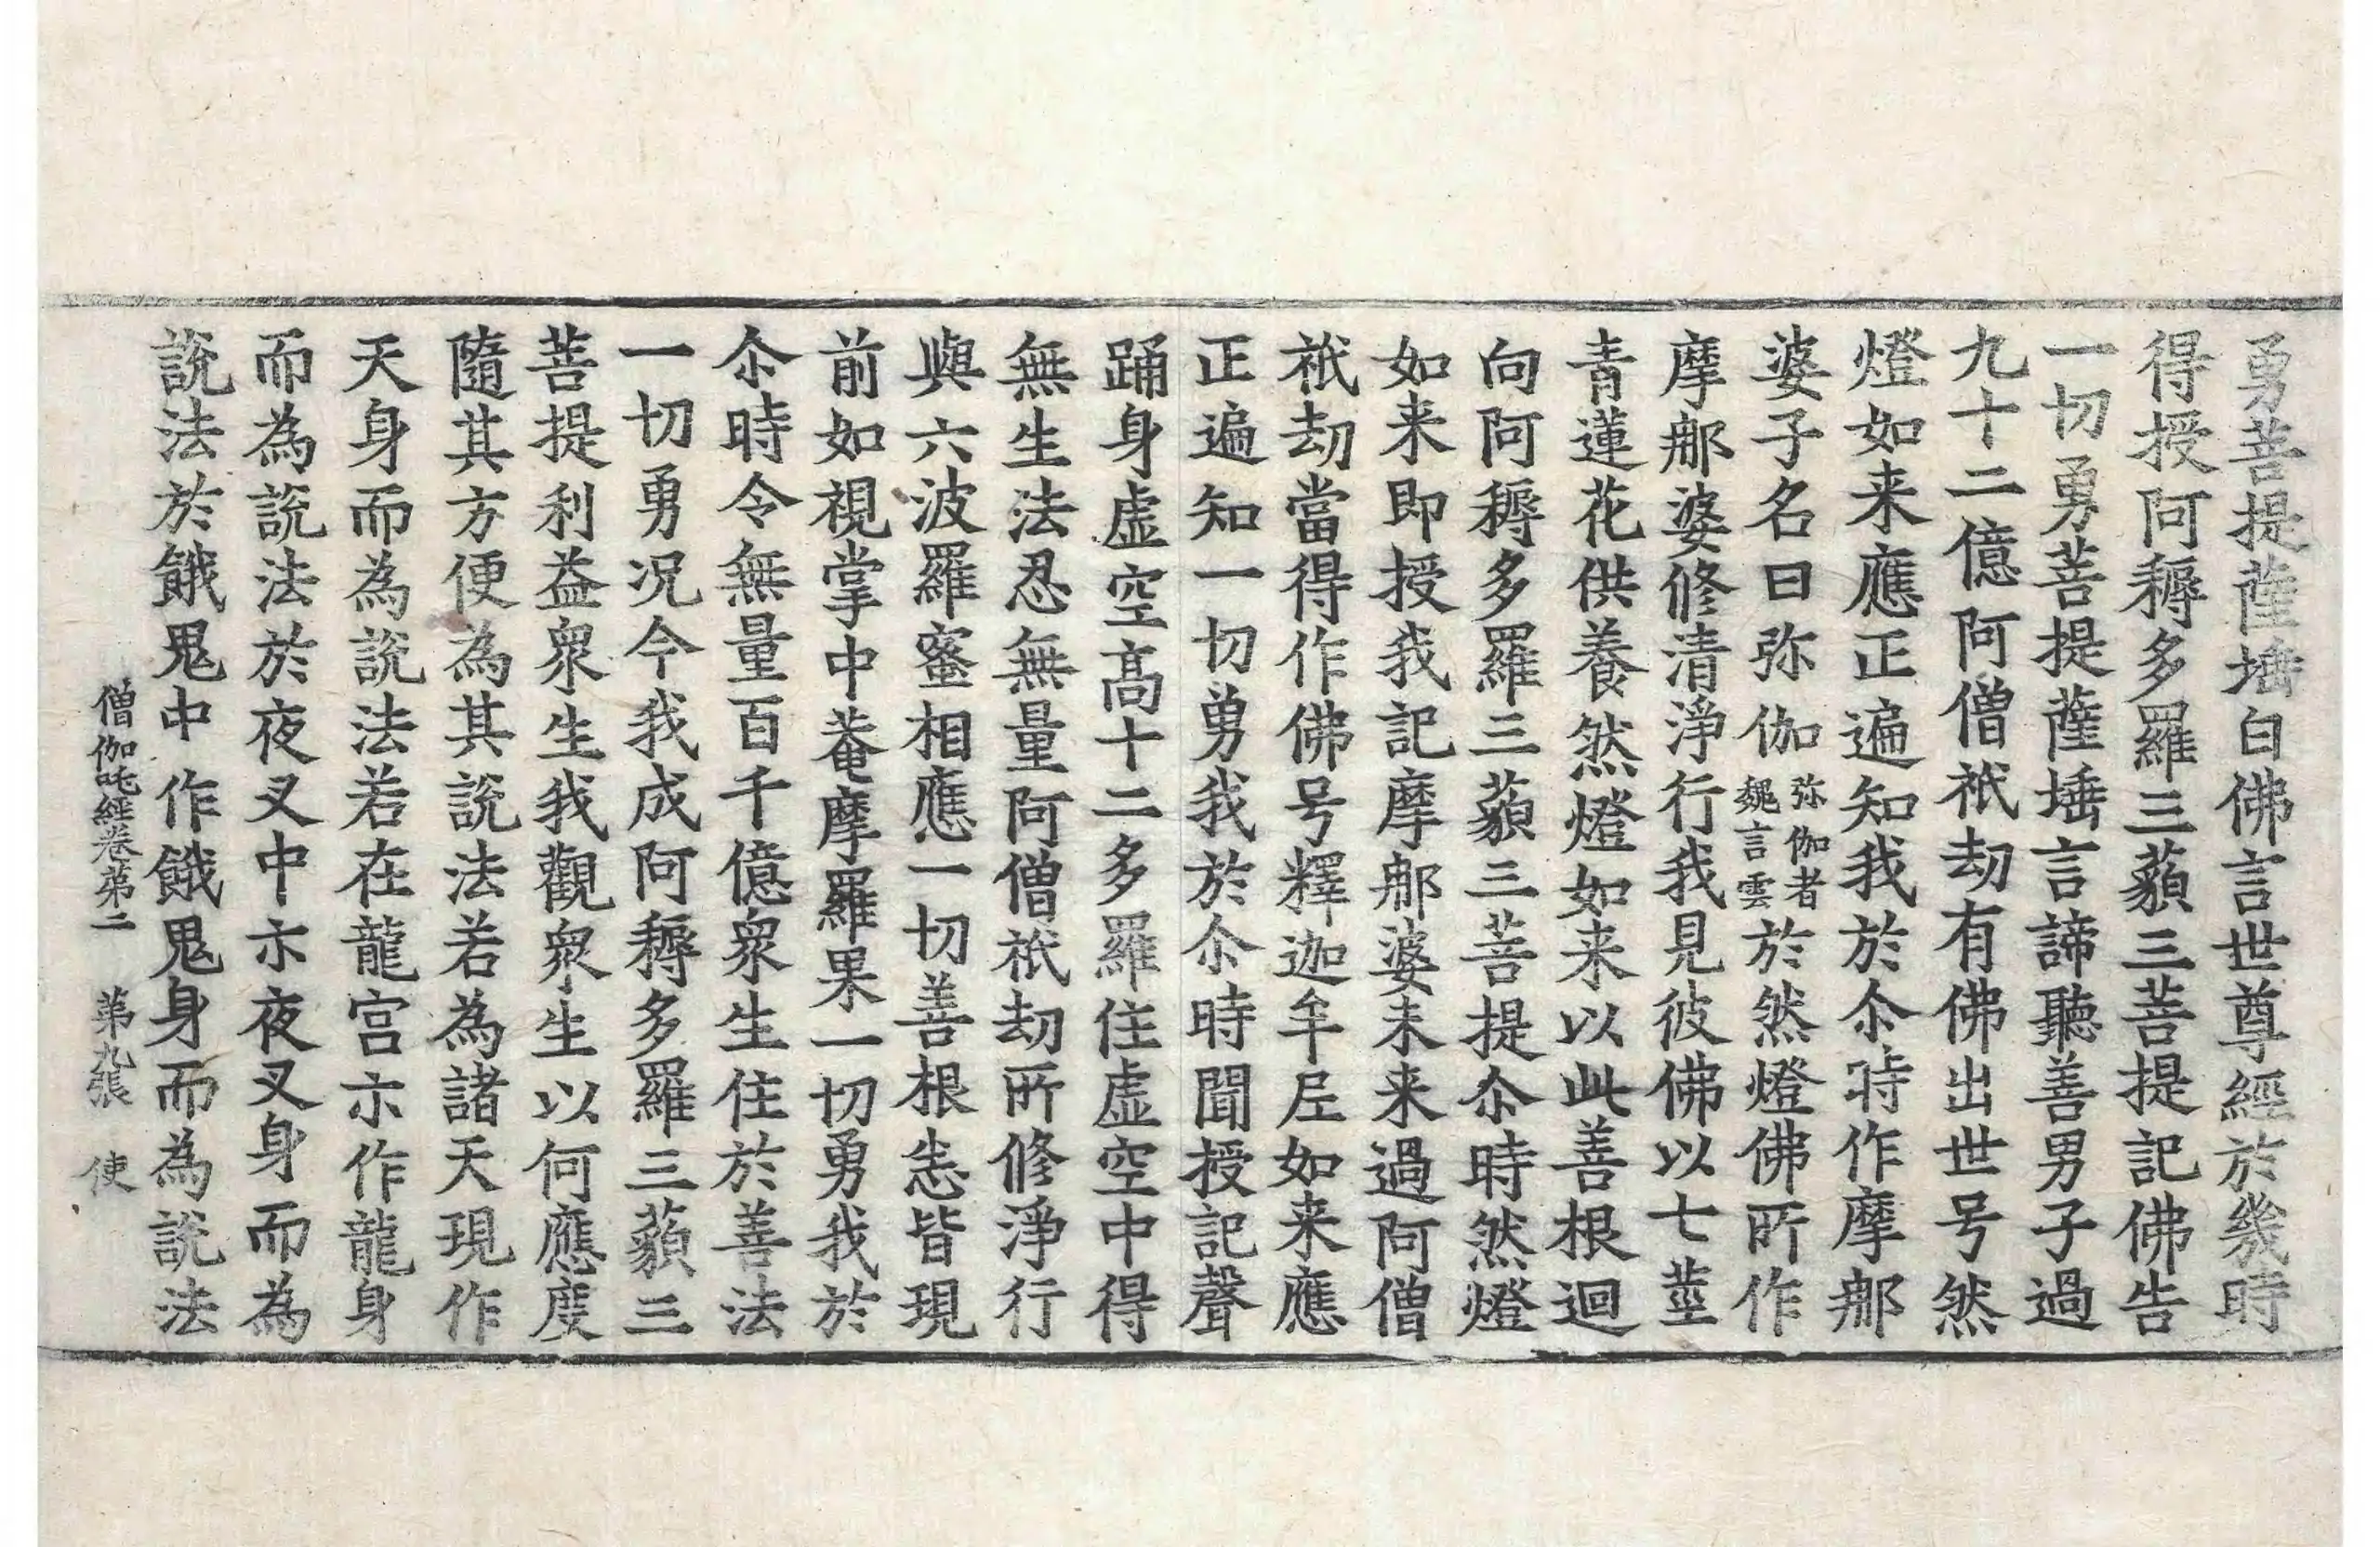 勇菩提薩埵白佛言世尊經於㡬時
得授阿耨多羅三藐三菩提記佛告
一切勇菩提薩埵言諦聽善男子過
九十二億阿僧祇劫有佛出世号然
燈如来應正遍知我於尒時作摩郍
婆子名曰弥伽弥伽者魏言雲於然燈佛所作
摩郍婆修清淨行我見彼佛以七莖
青蓮花供養然燈如来以此善根迴
向阿耨多羅三藐三菩提尒時然燈
如来即授我記摩郍婆未来過阿僧
祇劫當得作佛号釋迦牟𡰱如来應
正遍知一切勇我於尒時聞授記聲
踊身虛空高十二多羅住虛空中得
無生法忍無量阿僧祇劫所修淨行
與六波羅蜜相應一切善根悉皆現
前如視掌中菴摩羅果一切勇我於
尒時令無量百千億衆生住於善法
一切勇况今我成阿耨多羅三藐三
菩提利益衆生我觀衆生以何應度
隨其方便為其說法若為諸天現作
天身而為說法若在龍宫示作龍身
而為說法於夜叉中示夜叉身而為
說法於餓鬼中作餓鬼身而為說法
僧伽吒經卷苐二　苐九張　使